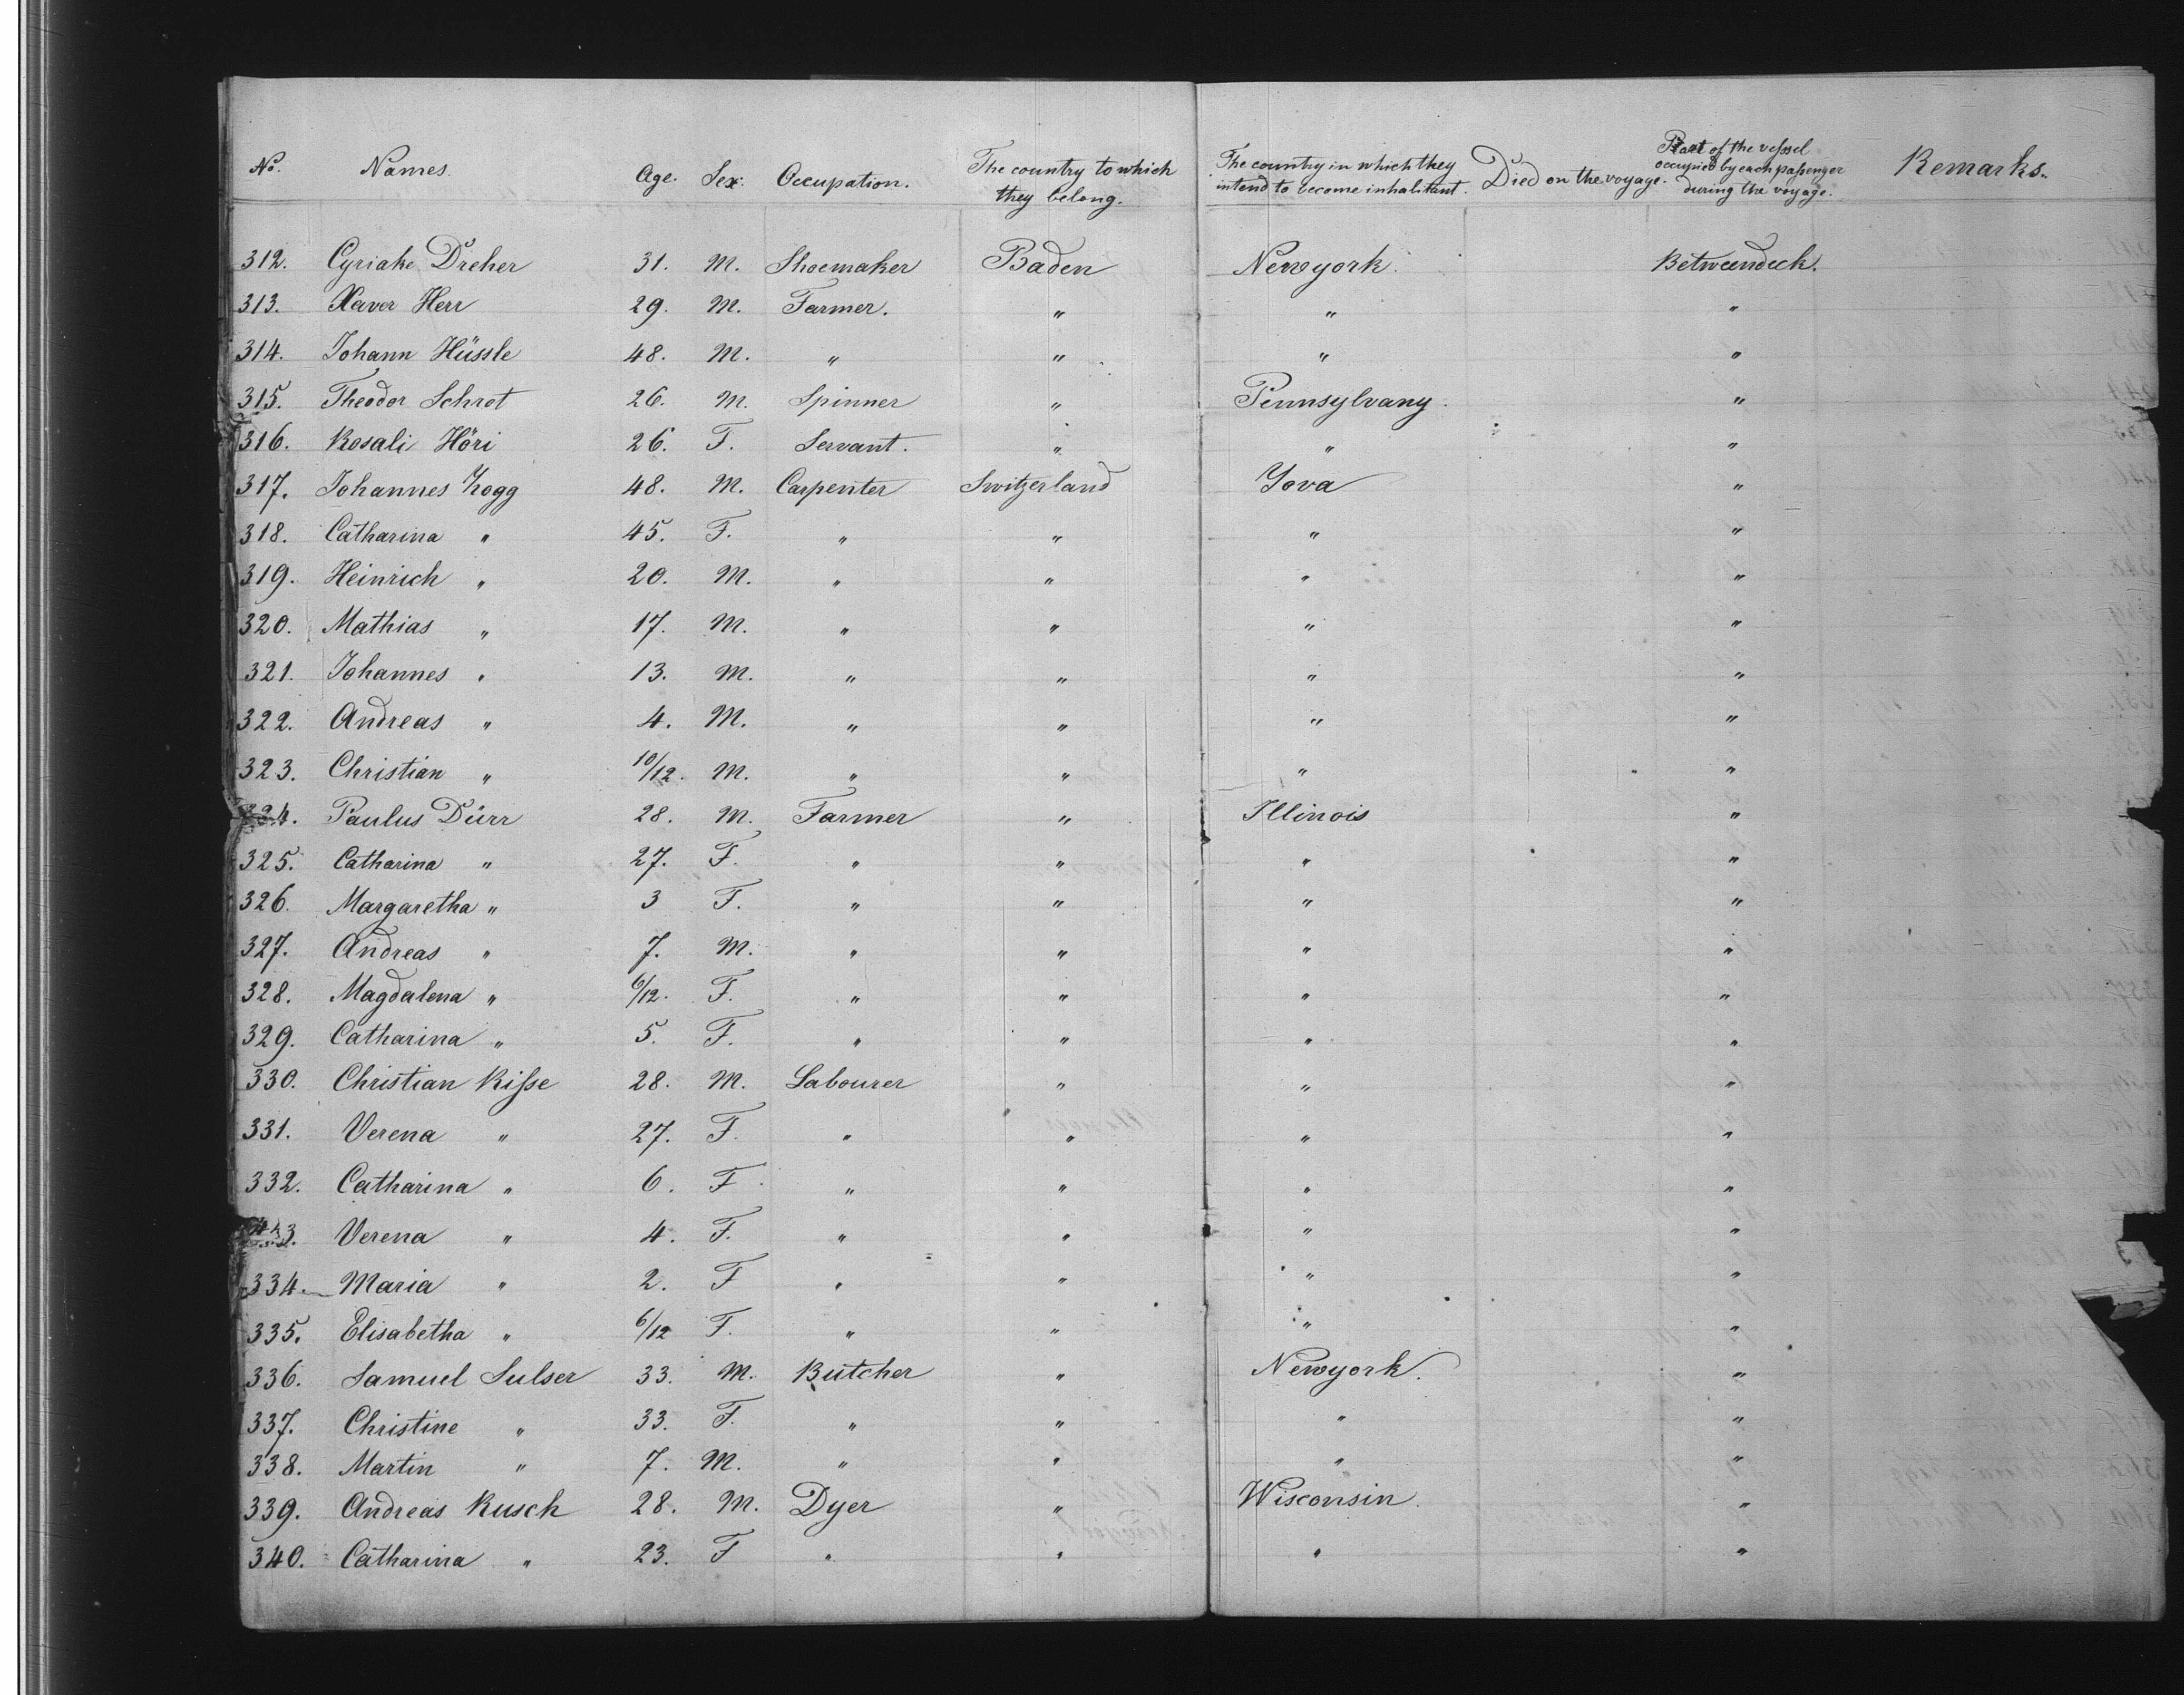 No. Names. Age. Sex. Occupation. The country to which they belong. The country in which they intend to become inhalitant. Died on the voyage. Part of the vessel occupied by each passenger during the voyage. Remarks.
312. Cyriake Dreher 31. M. Shoemaker Baden Newyork. Betweendeck.
313. Xaver Herr 29. M. Farmer. " " "
314. Johann Hüssle 48. M. " " " "
315. Theodor Schrot 26. M. Spinner " Pennsylvany. "
316. Rosali Höri 26. F. Servant. " " "
317. Johannes Zogg 48. M. Carpenter Switzerland Yova "
318. Catharina " 45. F. " " " "
319. Heinrich " 20. M. " " " "
320. Mathias " 17. M. " " " "
321. Johannes " 13. M. " " " "
322. Andreas " 4. M. " " " "
323. Christian " 10/12. M. " " " "
324. Paulus Dürr 28. M. Farmer " Illinois "
325. Catharina " 27. F. " " " "
326. Margaretha " 3 F. " " " "
327. Andreas " 7. M. " " " "
328. Magdalena " 6/12. F. " " " "
329. Catharina " 5. F. " " " "
330. Christian Risse 28. M. Labourer " " "
331. Verena " 27. F. " " " "
332. Catharina " 6. F. " " " "
3. Verena " 4. F. " " " "
334. Maria " 2. F " " " "
335. Elisabetha " 6/12 F. " " " "
336. Samuel Sulser 33. M. Butcher " Newyork. "
337. Christine " 33. F. " " " "
338. Martin " 7. M. " " " "
339. Andreas Rusch 28. M. Dyer " Wisconsin. "
340. Catharina " 23. F " " " "